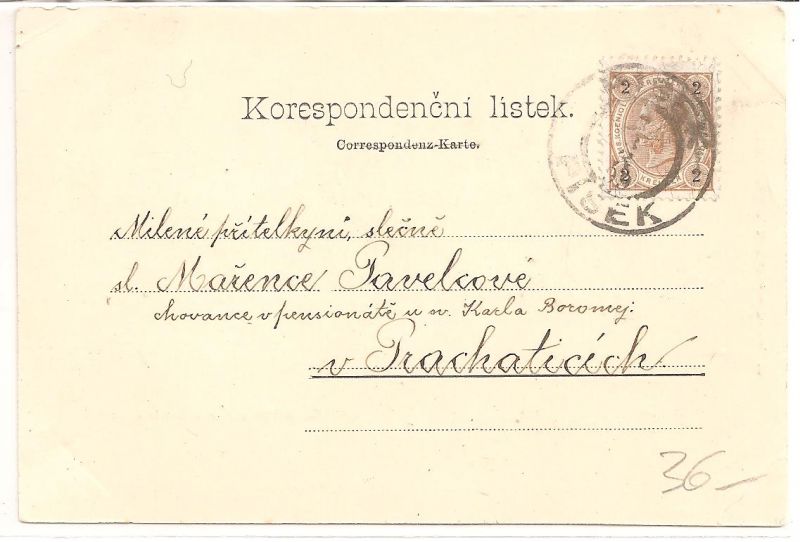 Korespondenční lístek.
Correspondenz-Karte.
2 2
2 2
PÍSEK
Milené přítelkyni, slečně
sl. Mařence Pavelcové
chovance v pensionátě u sv. Karla Boromej:
v Prachaticích
36—